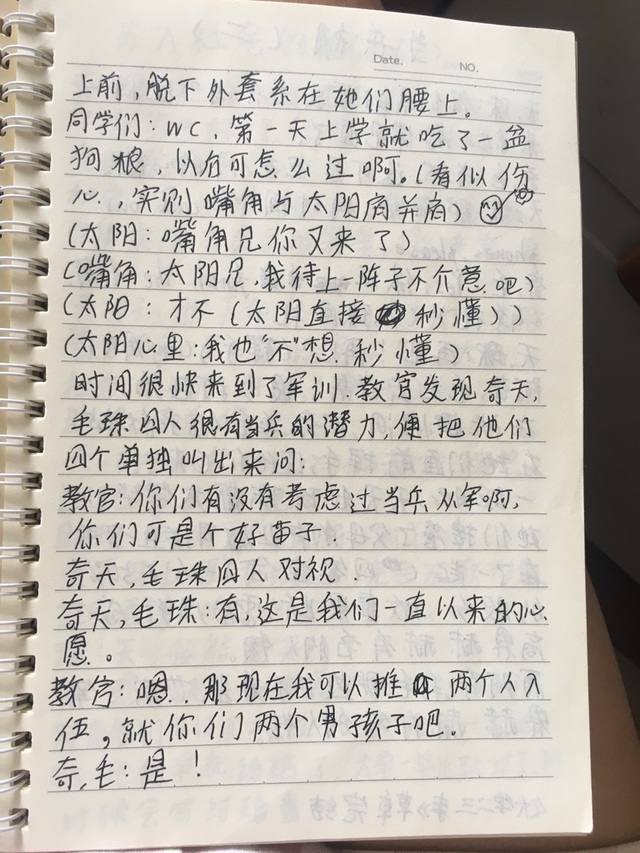 Date.
NO.
上前，脱下外套系在她们腰上。
同学们：WC，第一天上学就吃了一盆
狗粮，以后可怎么过啊。(看似伤
心，实则嘴角与太阳肩并肩)
(太阳：嘴角兄你又来了)
(嘴角：太阳兄，我待上一阵子不介意吧)
(太阳：才不(太阳直接秒懂))
(太阳心里：我也“不”想秒懂)
时间很快来到了军训.教官发现奇天,
毛珠四人很有当兵的潜力,便把他们
四个单独叫出来问:
教官:你们有没有考虑过当兵从军啊,
你们可是个好苗子.
奇天,毛珠四人对视.
奇天,毛珠:有,这是我们一直以来的心
愿。
教官:嗯..那现在我可以推两个人入
伍,就你们两个男孩子吧.
奇,毛:是!